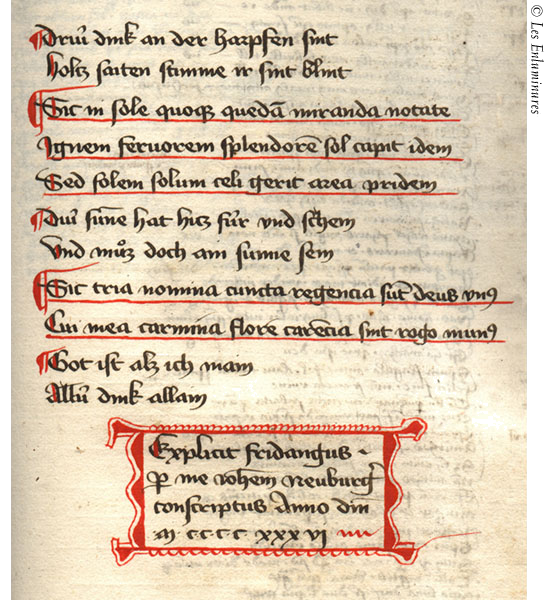 Driu dink an der harpfen sint
holtz saiten stimme ir sint blint
Sic in sole quoq; quedā miranda notate
Ignem feruorem splendorē sol capit idem
Sed solem solum celi gerit area pridem
Diu suñe hat hitz für vnd schem
Vnd muͦz doch ain sunne sein
Sic tria nomina cuncta regencia sūt deus vnꝯ
Cui mea carmina flore carēcia sint rogo munꝯ
Got ist alz ich main
Alliu dink allain
Explicit fridangus
ꝑ me Neuburg̉
conscriptus Anno dīn
M CCCC XXX VI
© Les Enluminures